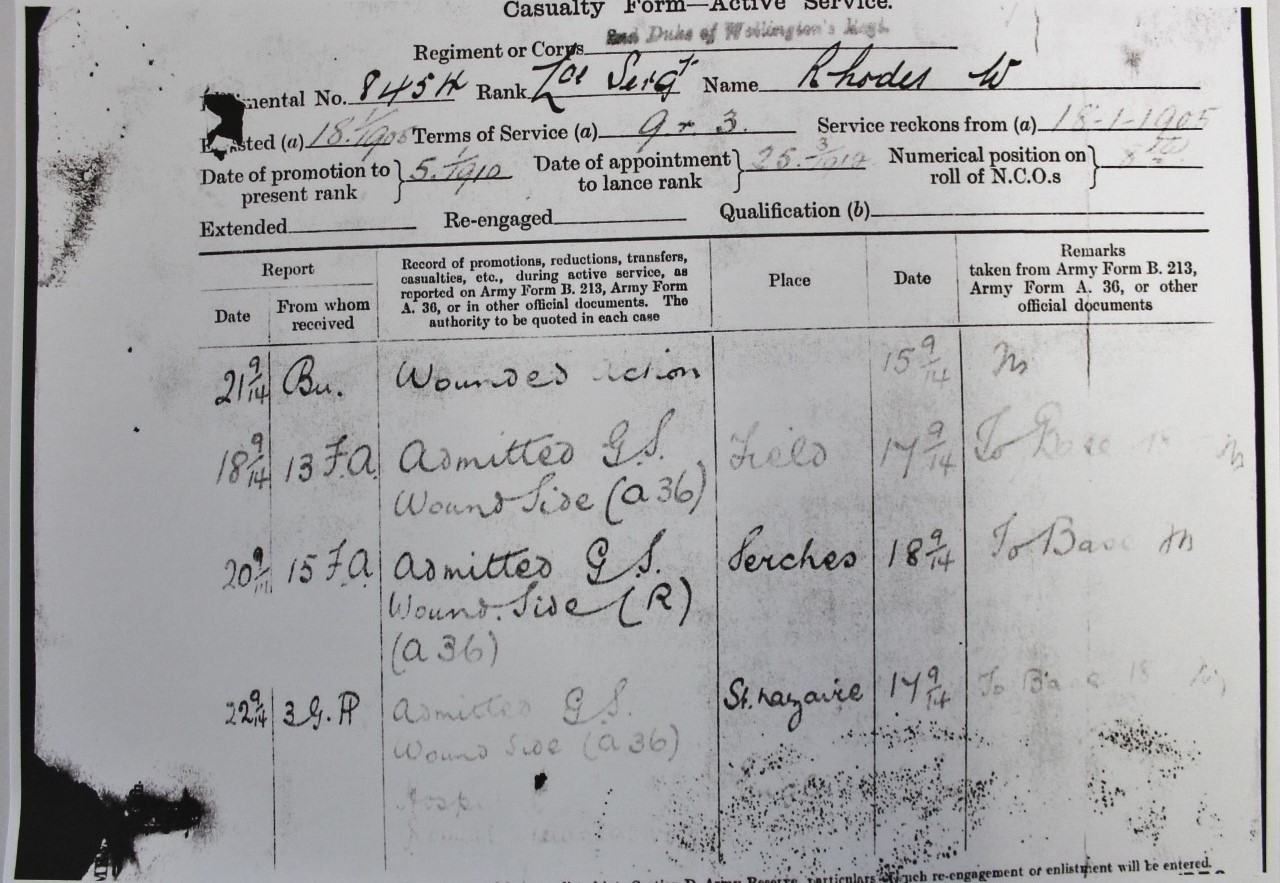 Casualty Form—Active Service.
Regiment or Corps 2nd Duke of Wellington's Regt.
mental No. 8454 Rank Lce Sergt Name Rhodes W
sted (a) 18.1/1905 Terms of Service (a) 9 + 3. Service reckons from (a) 18-1-1905
Date of promotion to present rank } 5.1/1910 Date of appointment to lance rank } 25.3/1912 Numerical position on roll of N.C.O.s }
Extended Re-engaged Qualification (b)
Report
Date From whom received
Record of promotions, reductions, transfers,
casualties, etc., during active service, as
reported on Army Form B. 213, Army Form
A. 36, or in other official documents. The
authority to be quoted in each case
Place
Date
Remarks
taken from Army Form B. 213,
Army Form A. 36, or other
official documents
21 9/14 Bn. Wounded action 15 9/14
18 9/14 13 F.A. Admitted G.S. Field 17 9/14 To Base
Wound Side (A 36)
20 9/14 15 F.A. Admitted G.S. Serches 18 9/14 To Base
Wound. Side (R)
(A 36)
22 9/14 3 G.H Admitted G.S. St. Nazaire 17 9/14 To Base 18
Wound Side (A 36)
Hosp.
such re-engagement or enlistment will be entered.